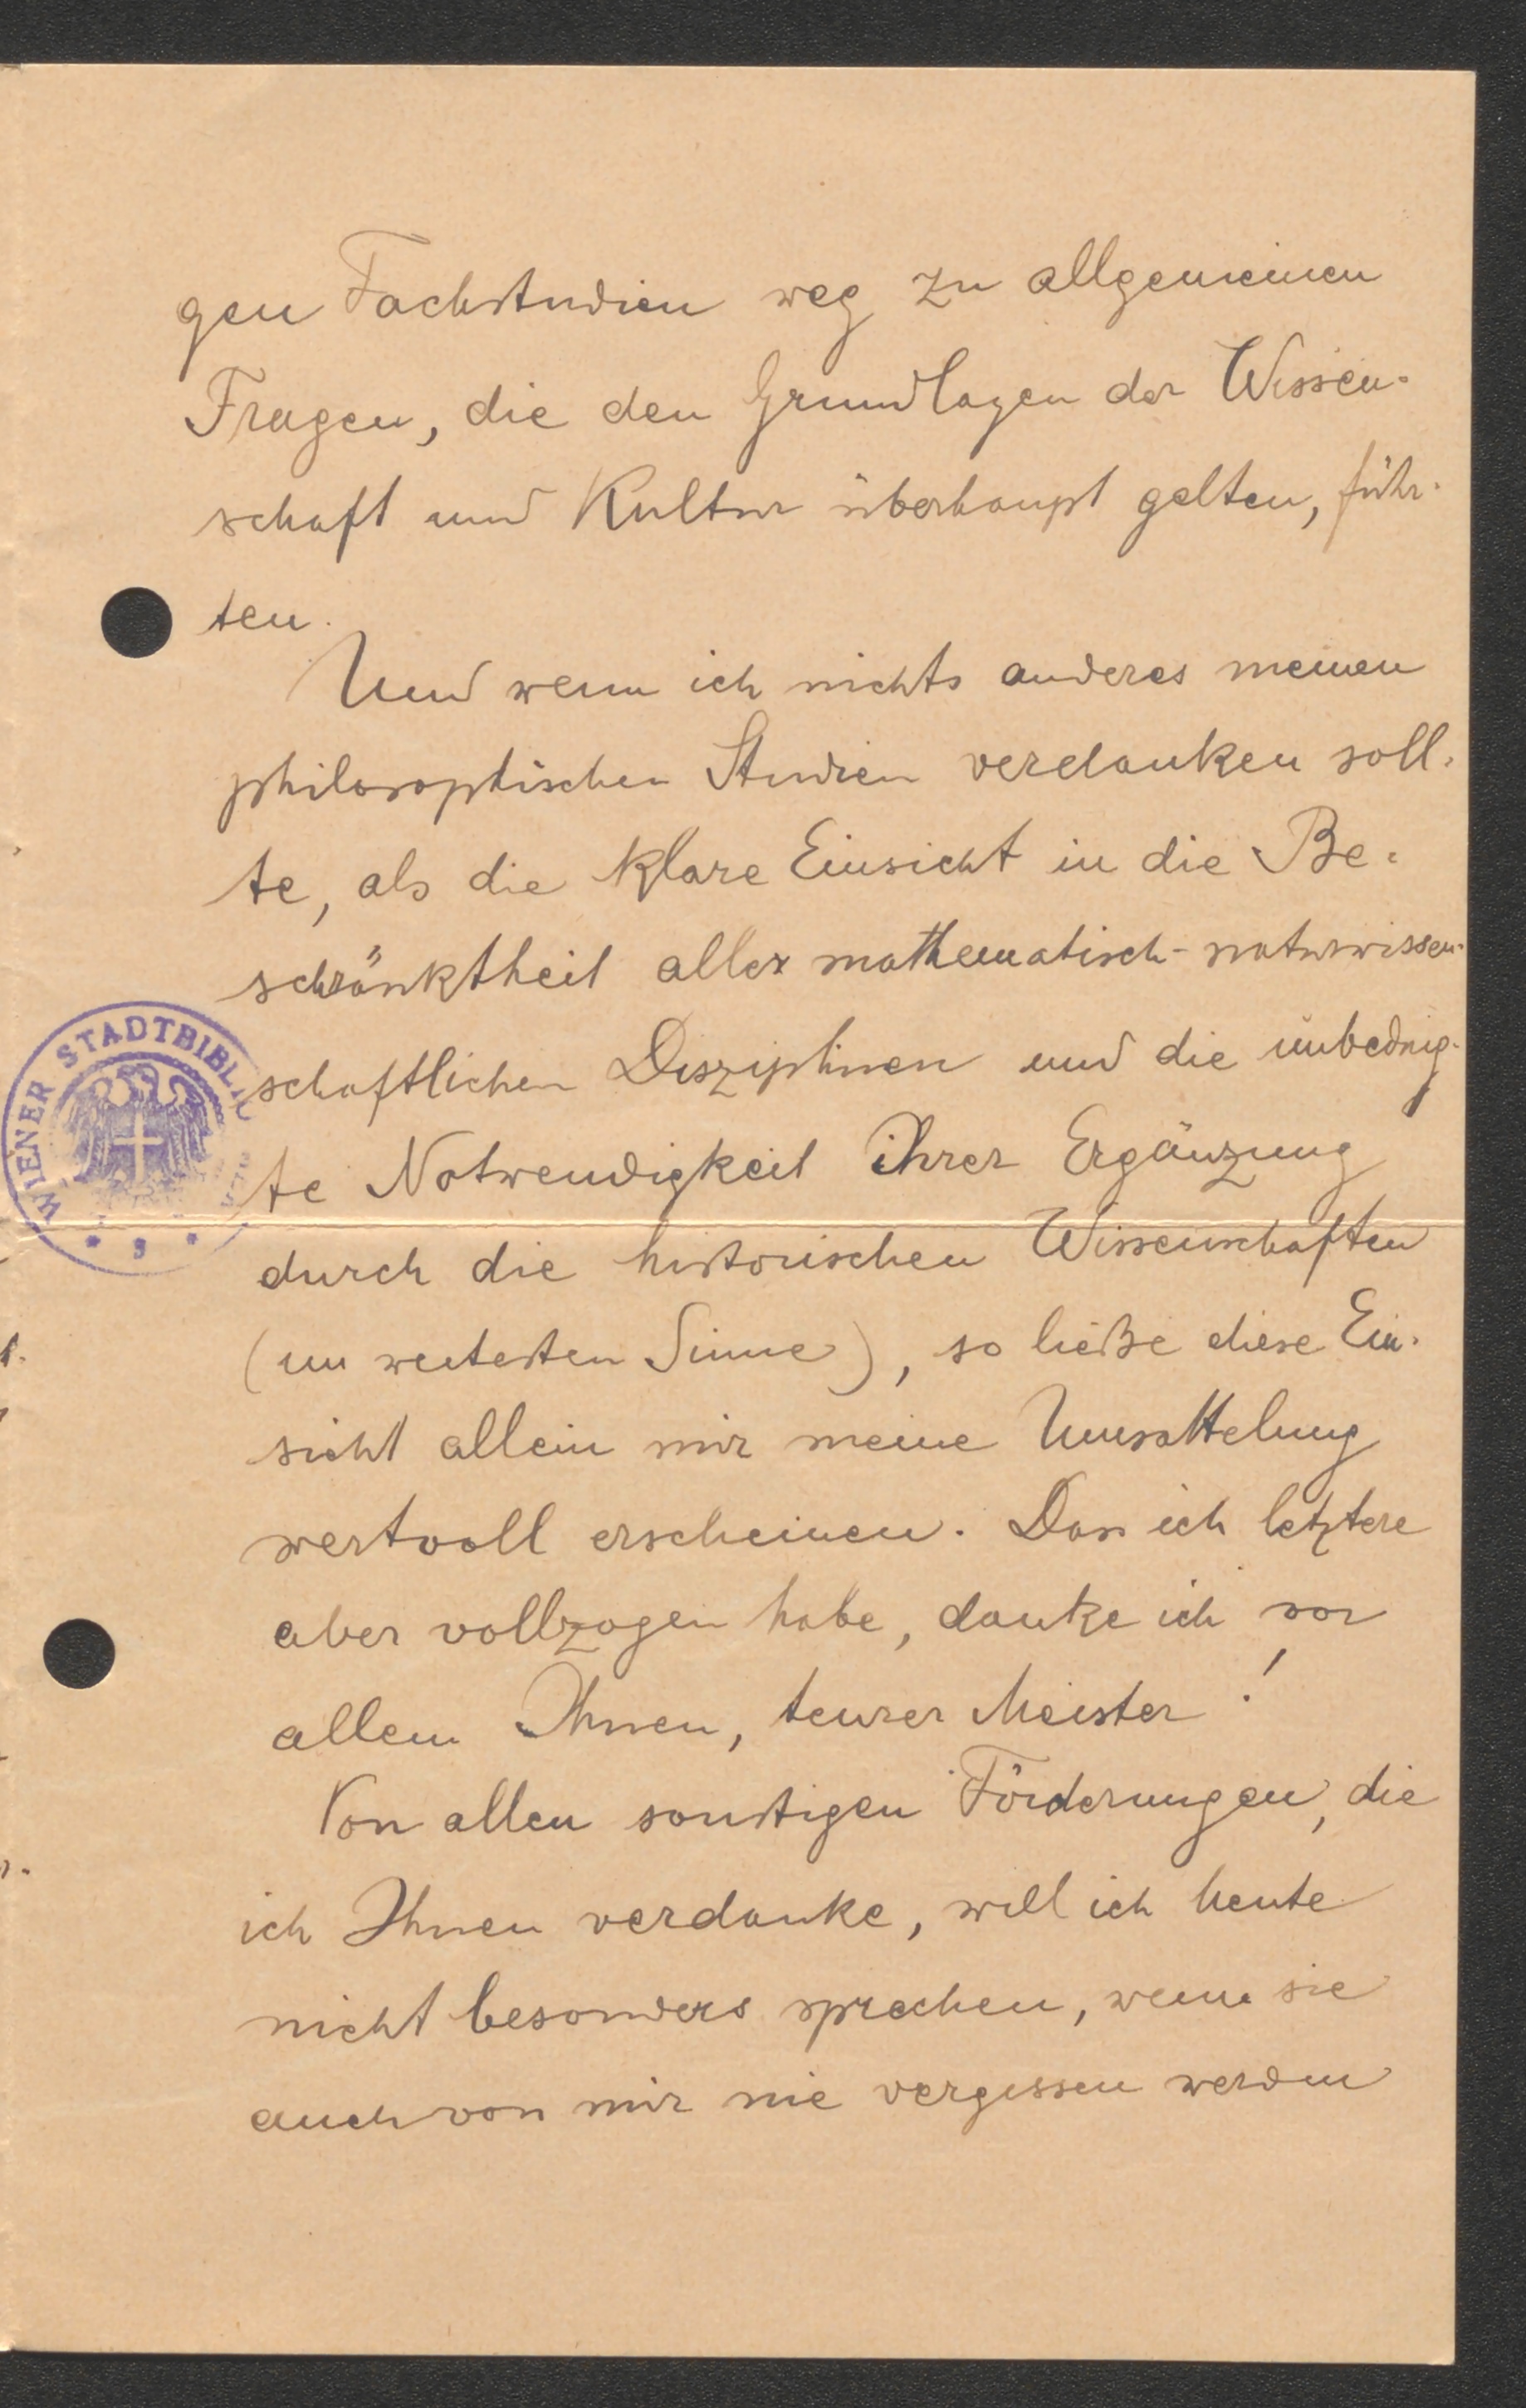 gen Fachstudien weg zu allgemeinen
Fragen, die den Grundlagen der Wissen-
schaft und Kultur überhaupt gelten, führ-
ten.
Und wenn ich nichts anderes meinen
philosophischen Studien verdanken soll-
te, als die klare Einsicht in die Be-
schränktheit aller mathematisch-naturwissen-
schaftlichen Disziplinen und die unbeding-
te Notwendigkeit ihrer Ergänzung
durch die historischen Wissenschaften
(im weitesten Sinne), so ließe diese Ein-
sicht allein mir meine Umsattelung
wertvoll erscheinen. Dass ich letztere
aber vollzogen habe, danke ich vor
allem Ihnen, teurer Meister!
Von allen sonstigen Förderungen, die
ich Ihnen verdanke, will ich heute
nicht besonders sprechen, wenn sie
auch von mir nie vergessen werden
WIENER STADTBIBLI
* 9 *